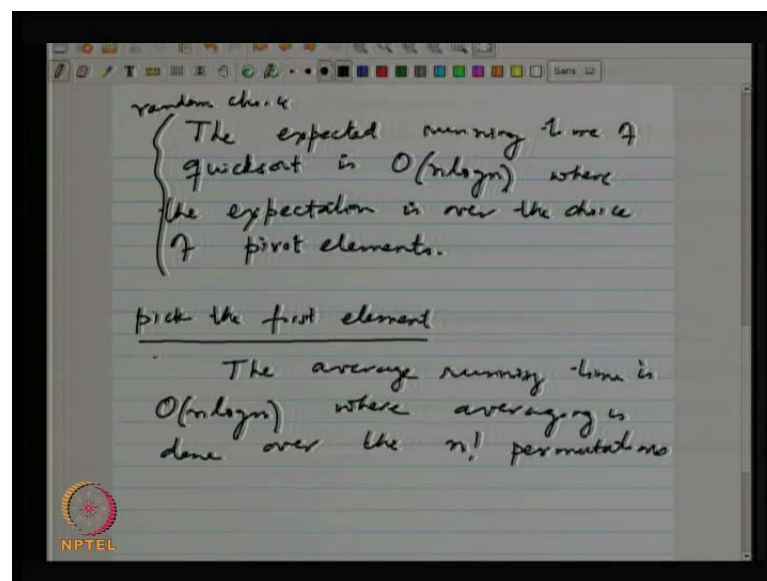 Sans 12
random choice
The expected running time of
quicksort is O(nlogn) where
the expectation is over the choice
of pivot elements.
pick the first element
The average running time is
O(nlogn) where averaging is
done over the n! permutations
NPTEL